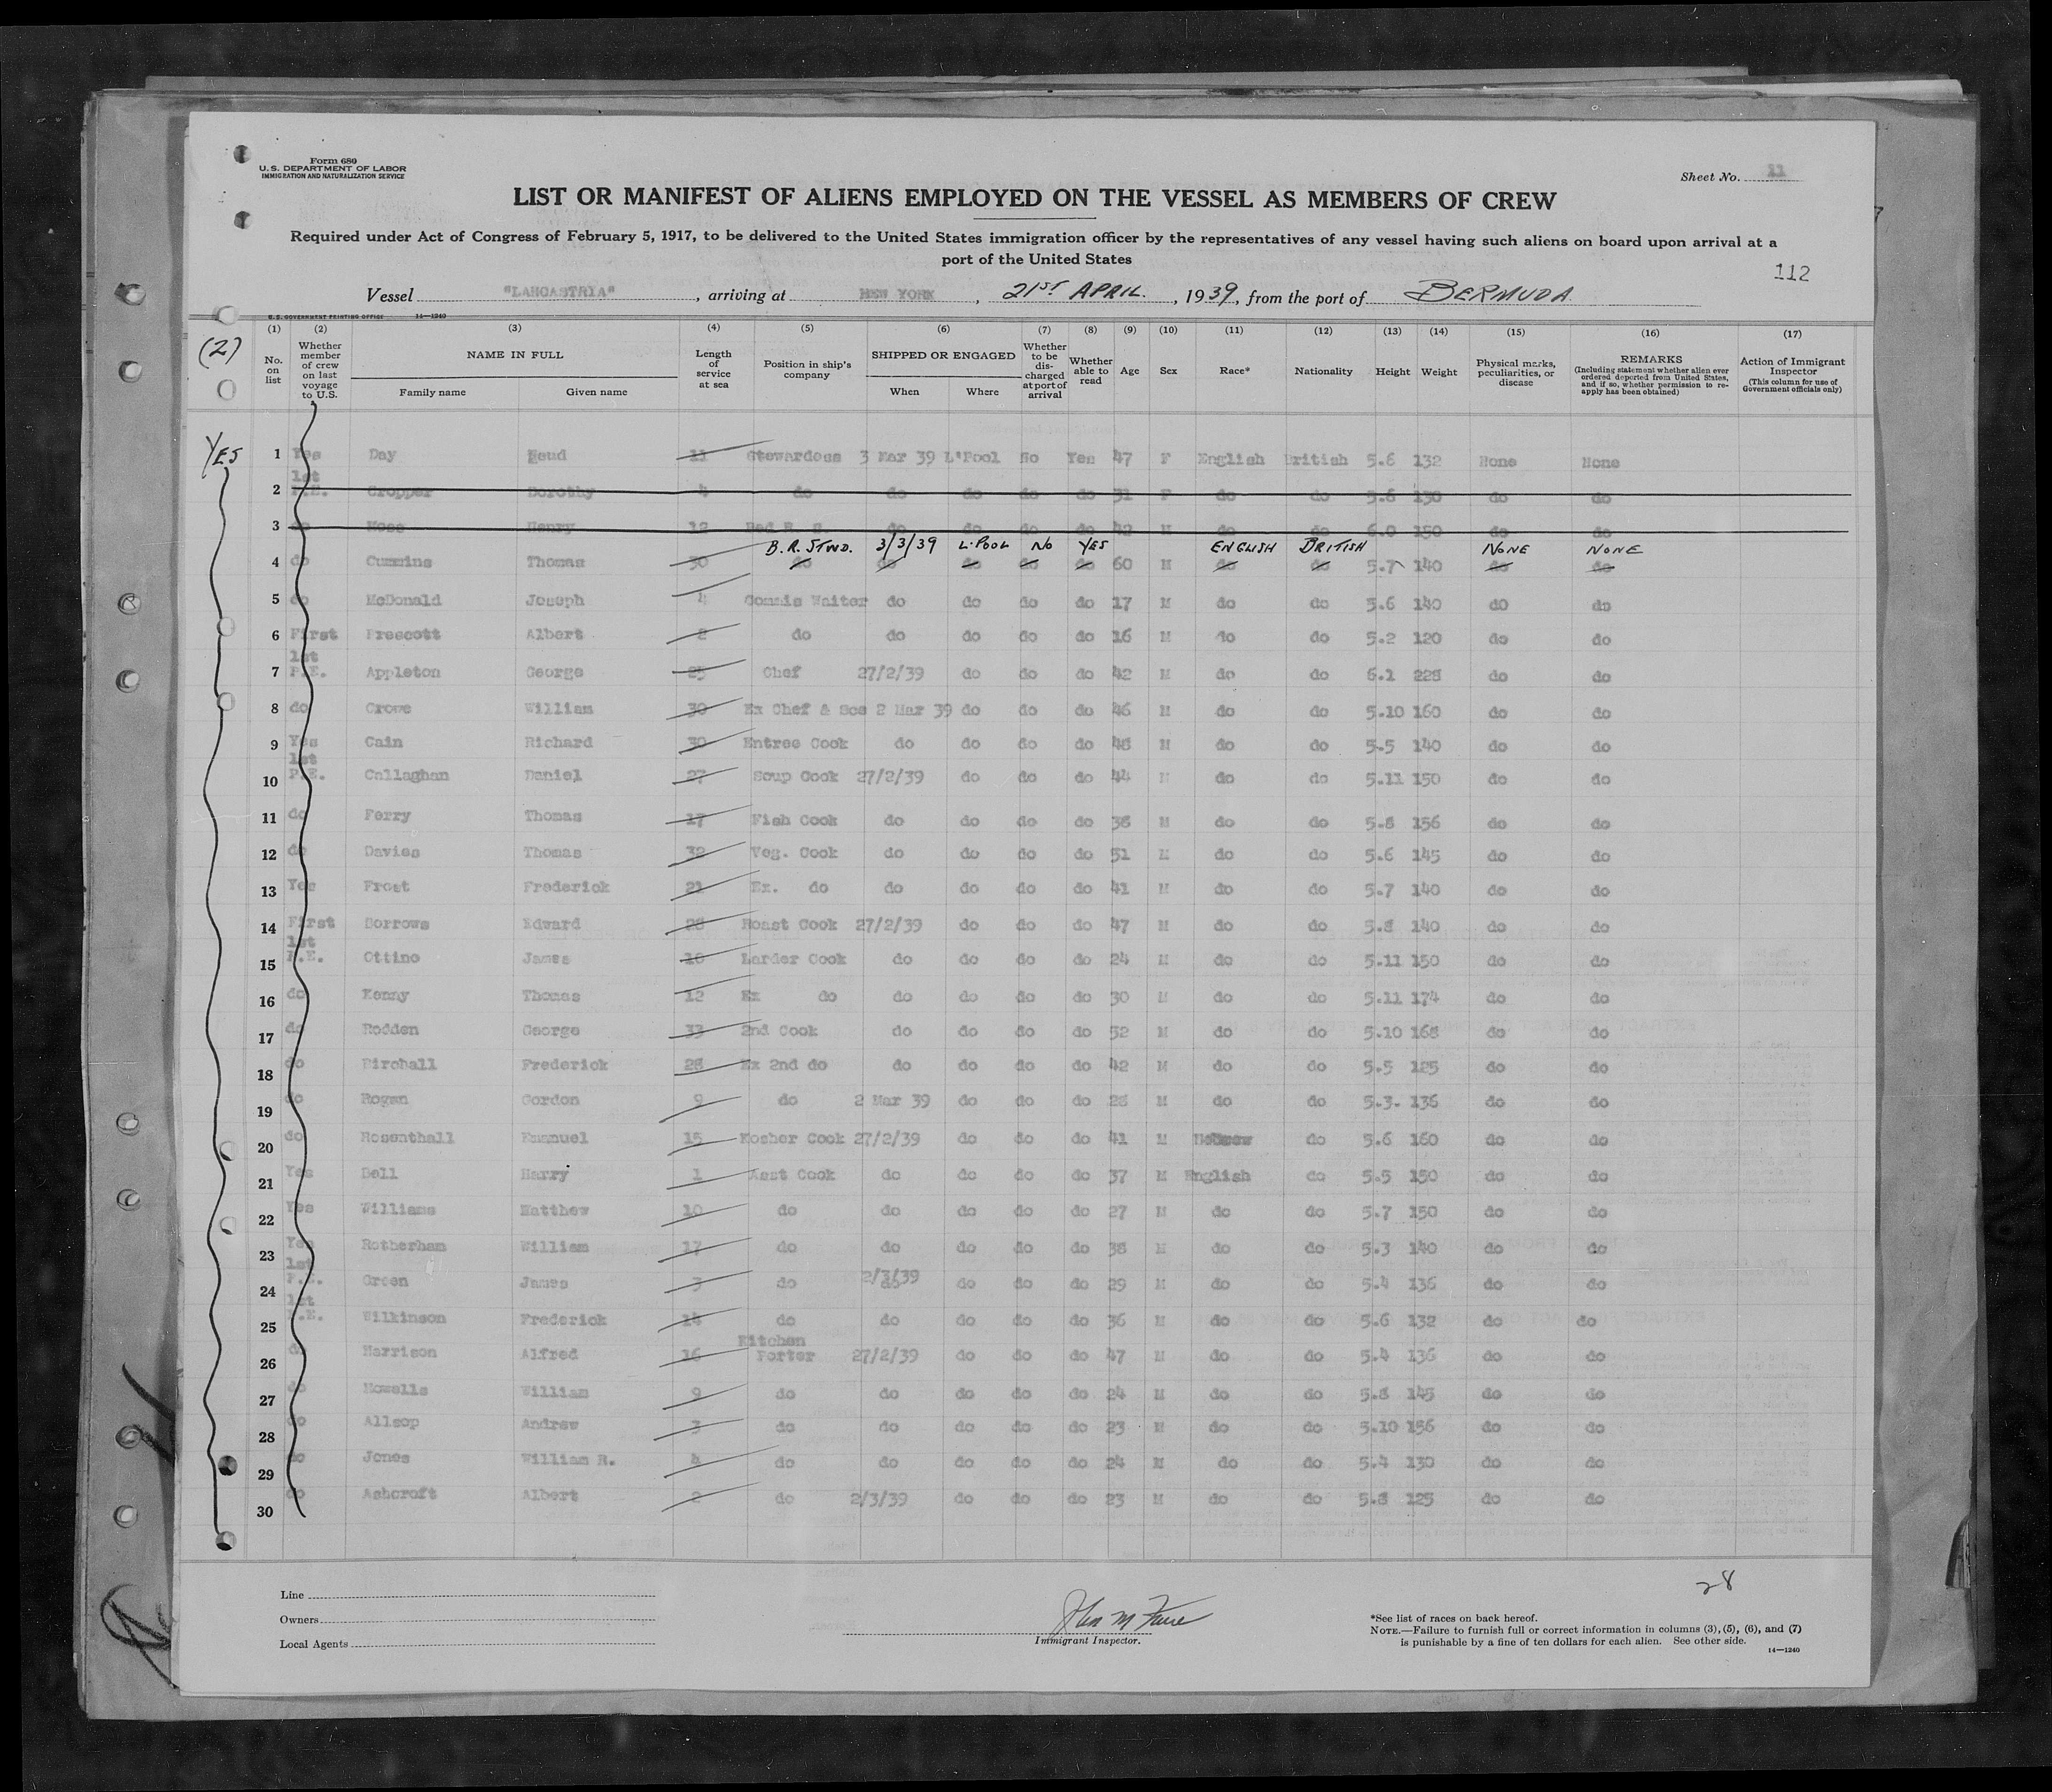 Form 680
U. S. DEPARTMENT OF LABOR
IMMIGRATION AND NATURALIZATION SERVICE
Sheet No. 11
LIST OR MANIFEST OF ALIENS EMPLOYED ON THE VESSEL AS MEMBERS OF CREW
Required under Act of Congress of February 5, 1917, to be delivered to the United States immigration officer by the representatives of any vessel having such aliens on board upon arrival at a
port of the United States
112
Vessel "LANCASTRIA", arriving at NEW YORK, 21ST APRIL., 1939, from the port of BERMUDA
U. S. GOVERNMENT PRINTING OFFICE 14—1240
(2)
(1) (2) (3) (4) (5) (6) (7) (8) (9) (10) (11) (12) (13) (14) (15) (16) (17)
No. on list
Whether member of crew on last voyage to U.S.
NAME IN FULL
Family name Given name
Length of service at sea
Position in ship's company
SHIPPED OR ENGAGED
When Where
Whether to be discharged at port of arrival
Whether able to read
Age Sex Race* Nationality Height Weight
Physical marks, peculiarities, or disease
REMARKS
(Including statement whether alien ever ordered deported from United States, and if so, whether permission to reapply has been obtained)
Action of Immigrant Inspector
(This column for use of Government officials only)
YES
1 Yes Day Maud 11 Stewardess 3 Mar 39 L'Pool No Yes 47 F English British 5.6 132 None None
2 1st P.E. Cropper Dorothy 4 do do do do do 31 F do do 5.6 130 do do
3 do Moss Henry 12 Bed R. S. do do do do 42 M do do 6.0 150 do do
B.R. STWD. 3/3/39 L.POOL NO YES ENGLISH BRITISH NONE NONE
4 do Cummins Thomas 30 do do do do do 60 M do do 5.7 140 do do
5 do McDonald Joseph 4 Commis Waiter do do do do 17 M do do 5.6 140 do do
6 First Prescott Albert 2 do do do do do 16 M do do 5.2 120 do do
7 1st P.E. Appleton George 25 Chef 27/2/39 do do do 42 M do do 6.1 228 do do
8 do Crowe William 30 Ex Chef & Sce 2 Mar 39 do do do 46 M do do 5.10 160 do do
9 Yes Cain Richard 30 Entree Cook do do do do 48 M do do 5.5 140 do do
10 1st P.E. Callaghan Daniel 27 Soup Cook 27/2/39 do do do 44 M do do 5.11 150 do do
11 do Ferry Thomas 17 Fish Cook do do do do 38 M do do 5.8 156 do do
12 do Davies Thomas 32 Veg. Cook do do do do 51 M do do 5.6 145 do do
13 Yes Frost Frederick 21 Ex. do do do do do 41 M do do 5.7 140 do do
14 First Borrows Edward 28 Roast Cook 27/2/39 do do do 47 M do do 5.8 140 do do
15 1st P.E. Ottino James 10 Larder Cook do do do do 24 M do do 5.11 150 do do
16 do Kenny Thomas 12 Ex do do do do do 30 M do do 5.11 174 do do
17 do Rodden George 33 2nd Cook do do do do 52 M do do 5.10 168 do do
18 do Birchall Frederick 28 Ex 2nd do do do do do 42 M do do 5.5 125 do do
19 do Rogan Gordon 9 do 2 Mar 39 do do do 28 M do do 5.3 136 do do
20 do Rosenthall Emanuel 15 Kosher Cook 27/2/39 do do do 41 M Hebrew do 5.6 160 do do
21 Yes Bell Harry 1 Asst Cook do do do do 37 M English do 5.5 150 do do
22 Yes Williams Matthew 10 do do do do do 27 M do do 5.7 150 do do
23 Yes Rotherham William 17 do do do do do 38 M do do 5.3 140 do do
24 1st P.E. Green James 3 do 2/3/39 do do do 29 M do do 5.4 136 do do
25 1st P.E. Wilkinson Frederick 14 do do do do do 36 M do do 5.6 132 do do
26 do Harrison Alfred 16 Kitchen Porter 27/2/39 do do do 47 M do do 5.4 136 do do
27 do Howells William 9 do do do do do 24 M do do 5.8 145 do do
28 do Allsop Andrew 3 do do do do do 23 M do do 5.10 156 do do
29 do Jones William R. 4 do do do do do 24 M do do 5.4 130 do do
30 do Ashcroft Albert 2 do 2/3/39 do do do 23 M do do 5.8 125 do do
28
Line
Owners
Local Agents
Immigrant Inspector.
*See list of races on back hereof.
NOTE.—Failure to furnish full or correct information in columns (3), (5), (6), and (7)
is punishable by a fine of ten dollars for each alien. See other side.
14—1240